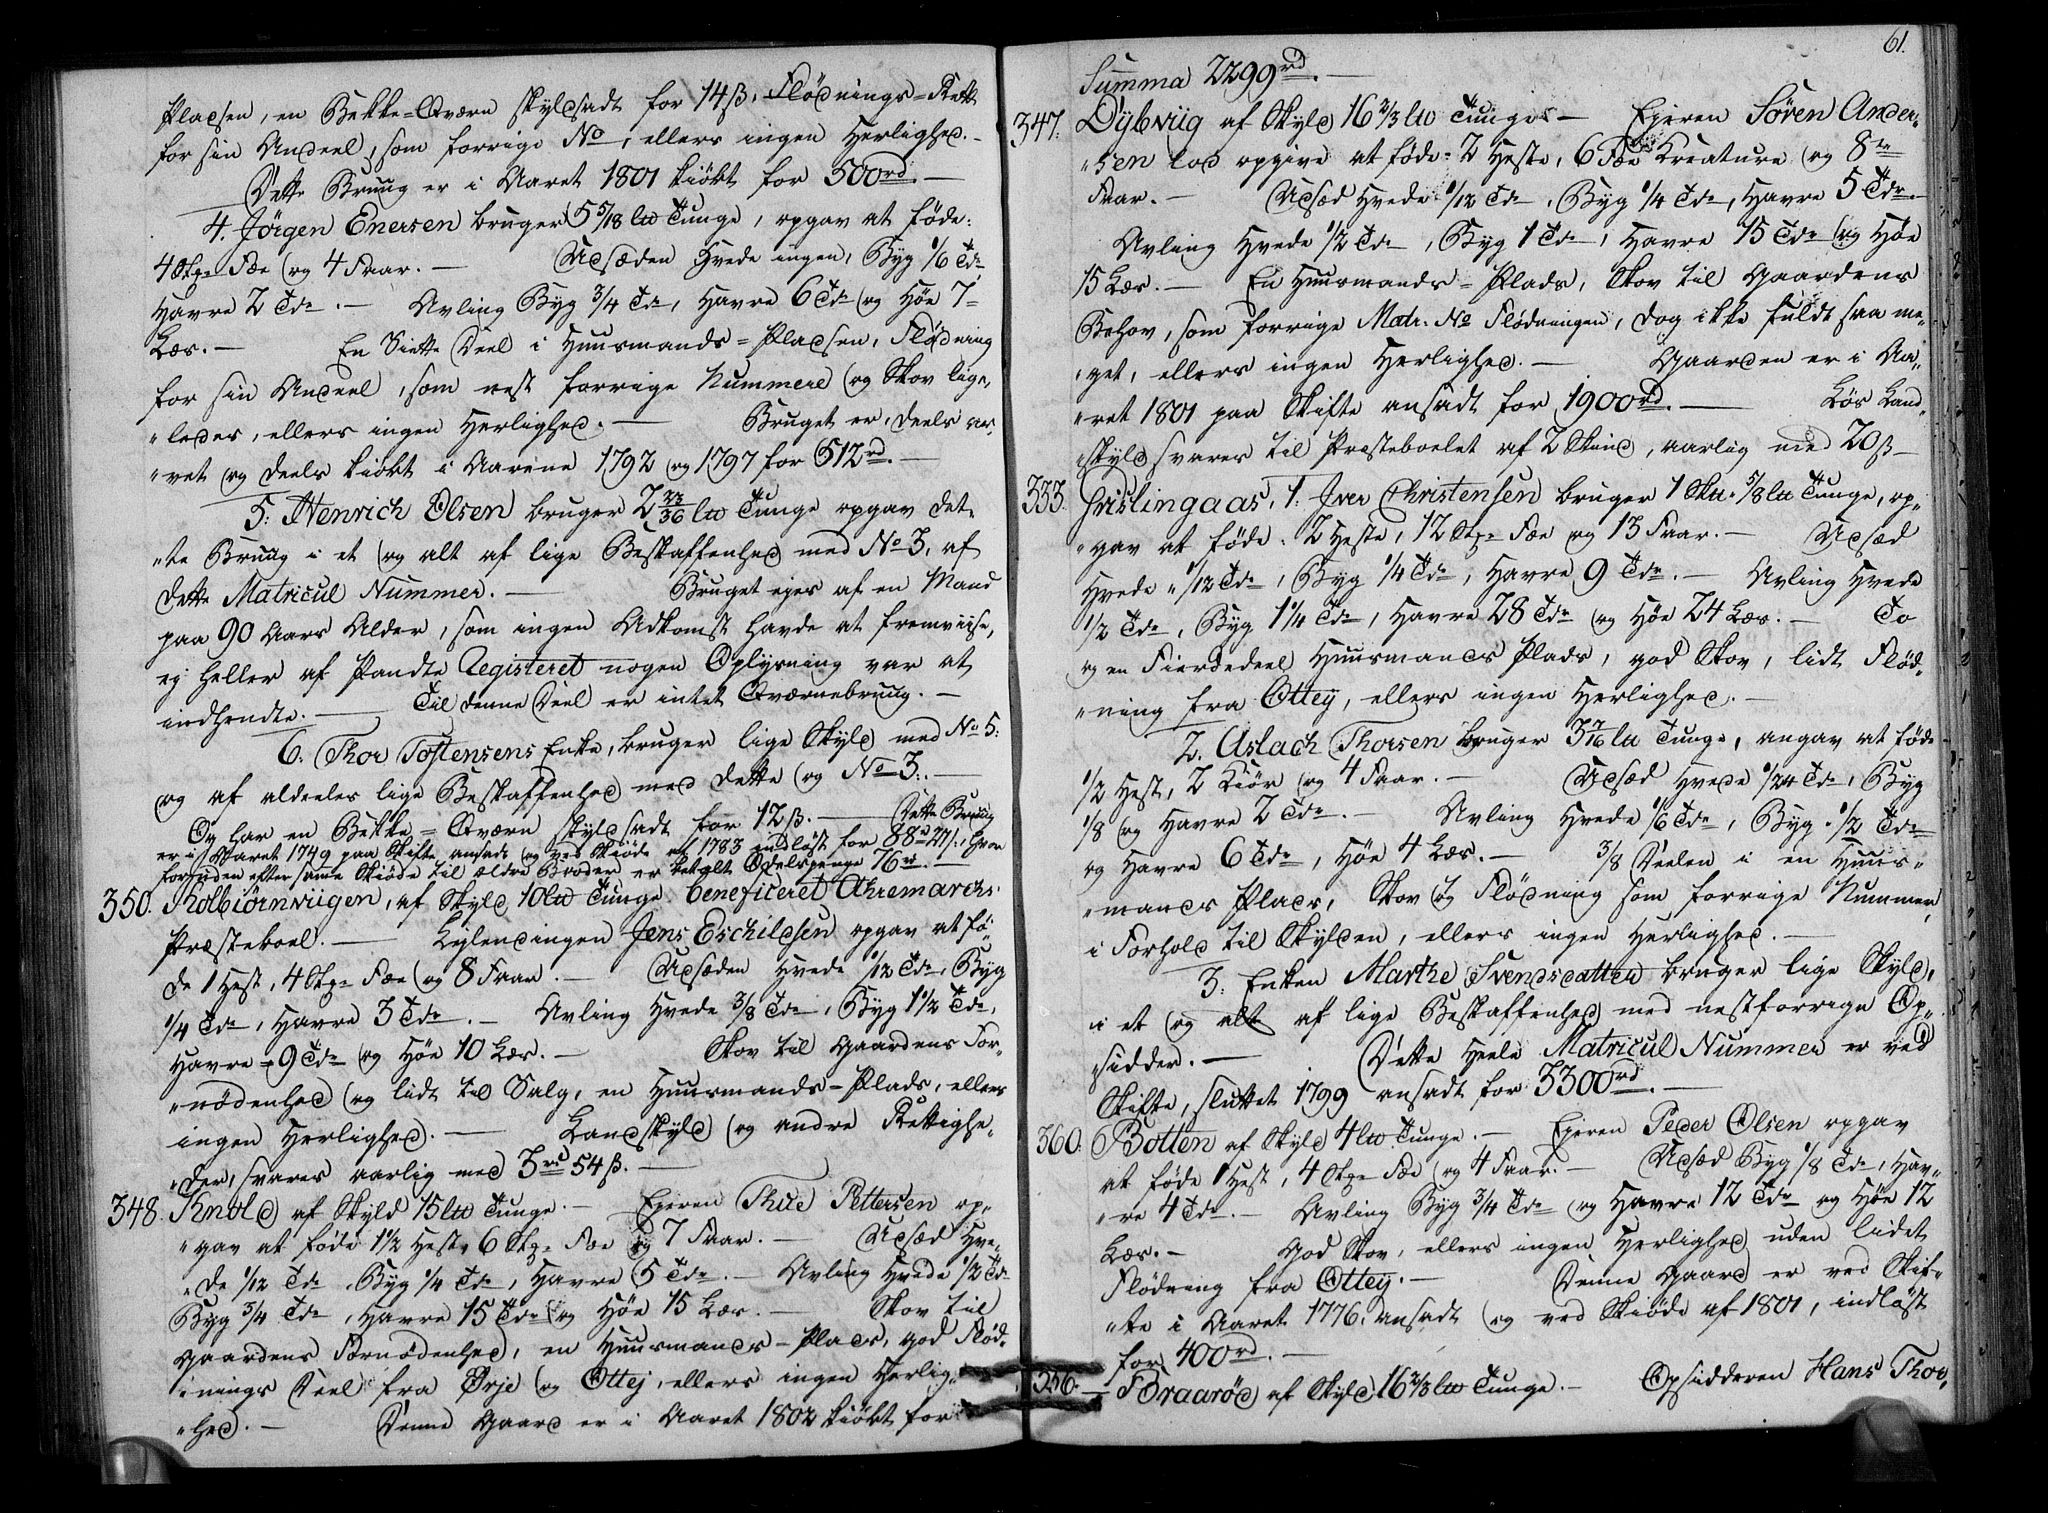 Pladsen, en Bekke-Qværn skyldsadt for 14ß, Flødnings-Rætt
for sin Andeel, som forrige No, ellers ingen Herlighed. —
Dette Bruug er i Aaret 1801 kiøbt for 500rd. —
4. Jörgen Enersen bruger 5 5/18 lb Tunge, opgav at føde:
4 Stk. Fæe og 4 Faar. — Udsæden Hvede ingen, Byg 1/6 Tde,
Havre 2 Tde. — Avling Byg 3/4 Tde, Havre 6 Tde og Høe 7-
Læs. — En Siette Deel i Huusmands-Pladsen, Flødning
for sin Andeel, som nest forrige Nummere og Skov lige-
"ledes, ellers ingen Herlighed. — Bruget er, deels ar-
"vet og deels kiøbt i Aarene 1792 og 1797 for 512rd. —
5. Henrich Olsen bruger 2 23/36 lb Tunge opgav det-
"te Bruug i et og alt af lige Beskaffenhed med No 3, af
dette Matricul Nummer. — Bruget ejes af en Mand
paa 90 Aars Alder, som ingen Adkomst havde at fremviise,
ej heller af Pandte Registeret nogen Oplysning var at
indhendte. — Til denne Deel er intet Qværnebruug. —
6. Thor Tostensens Enke, bruger lige Skyld med No 5.
og af aldeeles lige Beskaffenhed med dette og No 3. —
Og har en Bekke-Qværn skyldsadt for 12ß. — Dette Bruug
er i Aaret 1749 paa Skifte ansadt og ved Skiøde af 1783 indløst for 88rd 22ß, hvor
foruden efter same Skiøde til ældre Broder er betalt Odelspenge 76rd.
350. Kolbiörnviigen, af Skyld 10 lb Tunge beneficeret Ahremarchs
Præsteboel. — Leylendingen Jens Eschildsen opgav at fø-
de 1 Hest, 4 Stk. Fæe og 8 Faar. — Udsæden Hvede 1/12 Tde, Byg
1/4 Tde, Havre 3 Tde. — Avling Hvede 3/8 Tde, Byg 1 1/2 Tde,
Havre 9 Tde og Høe 10 Læs. — Skov til Gaardens For-
"nødenhed og lidt til Salg, en Huusmands-Plads, ellers
ingen Herlighed. — Landskyld og andre Rettighe-
"der, svares aarlig med 3rd 54ß. —
348. Knold af Skyld 15 lb Tunge. — Ejeren Thue Pettersen op-
"gav at føde 1 1/2 Hest, 6 Stk. Fæe og 7 Faar. — Udsæd Hve-
"de 1/12 Tde, Byg 1/4 Tde, Havre 5 Tde. — Avling Hvede 1/2 Tde
Byg 3/4 Tde, Havre 15 Tde og Høe 15 Læs. — Skov til
Gaardens Fornødenhed, en Huusmands-Plads, god Flød-
"nings Deel fra Ørje og Ottej, ellers ingen Herlig-
"hed. — Denne Gaard er i Aaret 1802 kiøbt for
61.
Summa 2299rd. —
347. Dybviig af Skyld 16 2/3 lb Tunge — Ejeren Søren Ander-
"sen lod opgive at føde: 2 Heste, 6 Fæe Kreature og 8te
Faar. — Udsæd Hvede 1/12 Tde, Byg 1/4 Tde, Havre 5 Tdr —
Avling Hvede 1/2 Tde, Byg 1 Tde, Havre 15 Tde og Høe
15 Læs. — En Huusmands-Plads, Skov til Gaardens
Behov, som forrige Matr. No Flødningen, dog ikke fuldt saa me-
"get, ellers ingen Herlighed. — Gaarden er i Aa-
"ret 1801 paa Skifte ansadt for 1900rd. — Løs Land-
skyld svares til Præsteboelet af 2 Skind, aarlig med 20ß —
333. Grislingaas, 1. Iver Christensen bruger 1 Skt. 5/8 lb Tunge, op-
"gav at føde: 2 Heste, 12 Stk. Fæe og 13 Faar. — Udsæd
Hvede 1/12 Tde, Byg 1/4 Tde, Havre 9 Tde. — Avling Hvede
1/2 Tde, Byg 1 1/4 Tde, Havre 28 Tde og Høe 24 Læs. — To
og en Fierdedeel Huusmands Plads, god Skov, lidt Flød-
"ning fra Ottej, ellers ingen Herlighed. —
2. Aslach Thorsen bruger 3 7/16 lb Tunge, angav at føde
1/2 Hest, 2 Kiør og 4 Faar. — Udsæd Hvede 1/24 Tde, Byg
1/8 og Havre 2 Tde. — Avling Hvede 1/6 Tde, Byg 1/2 Tde
og Havre 6 Tde, Høe 4 Læs. — 3/8 Deelen i en Huus-
"mands Plads, Skov og Flødning som forrige Nummer,
i Forhold til Skylden, ellers ingen Herlighed. —
3. Enken Marthe Svendsdatter bruger lige Skyld,
i et og alt af lige Beskaffenhed med nestforrige Op-
"sidder. — Dette Heele Matricul Nummer er ved
Skifte, sluttet 1799 ansadt for 3300rd. —
360. Botten af Skyld 4 lb Tunge. — Ejeren Peder Olsen opgav
at føde 1 Hest, 4 Stk. Fæe og 4 Faar. — Udsæd Byg 1/8 Tde, Hav-
"re 4 Tde. — Avling Byg 3/4 Tde og Havre 12 Tde og Høe 12
Læs. — God Skov, ellers ingen Herlighed uden lidet
Flødning fra Ottej. — Denne Gaard er ved Skif-
"te i Aaret 1776 ansadt og ved Skiøde af 1801, indløst
for 400rd. —
356. — Braarød af Skyld 16 2/3 lb Tunge. — Opsidderen Hans Thor-